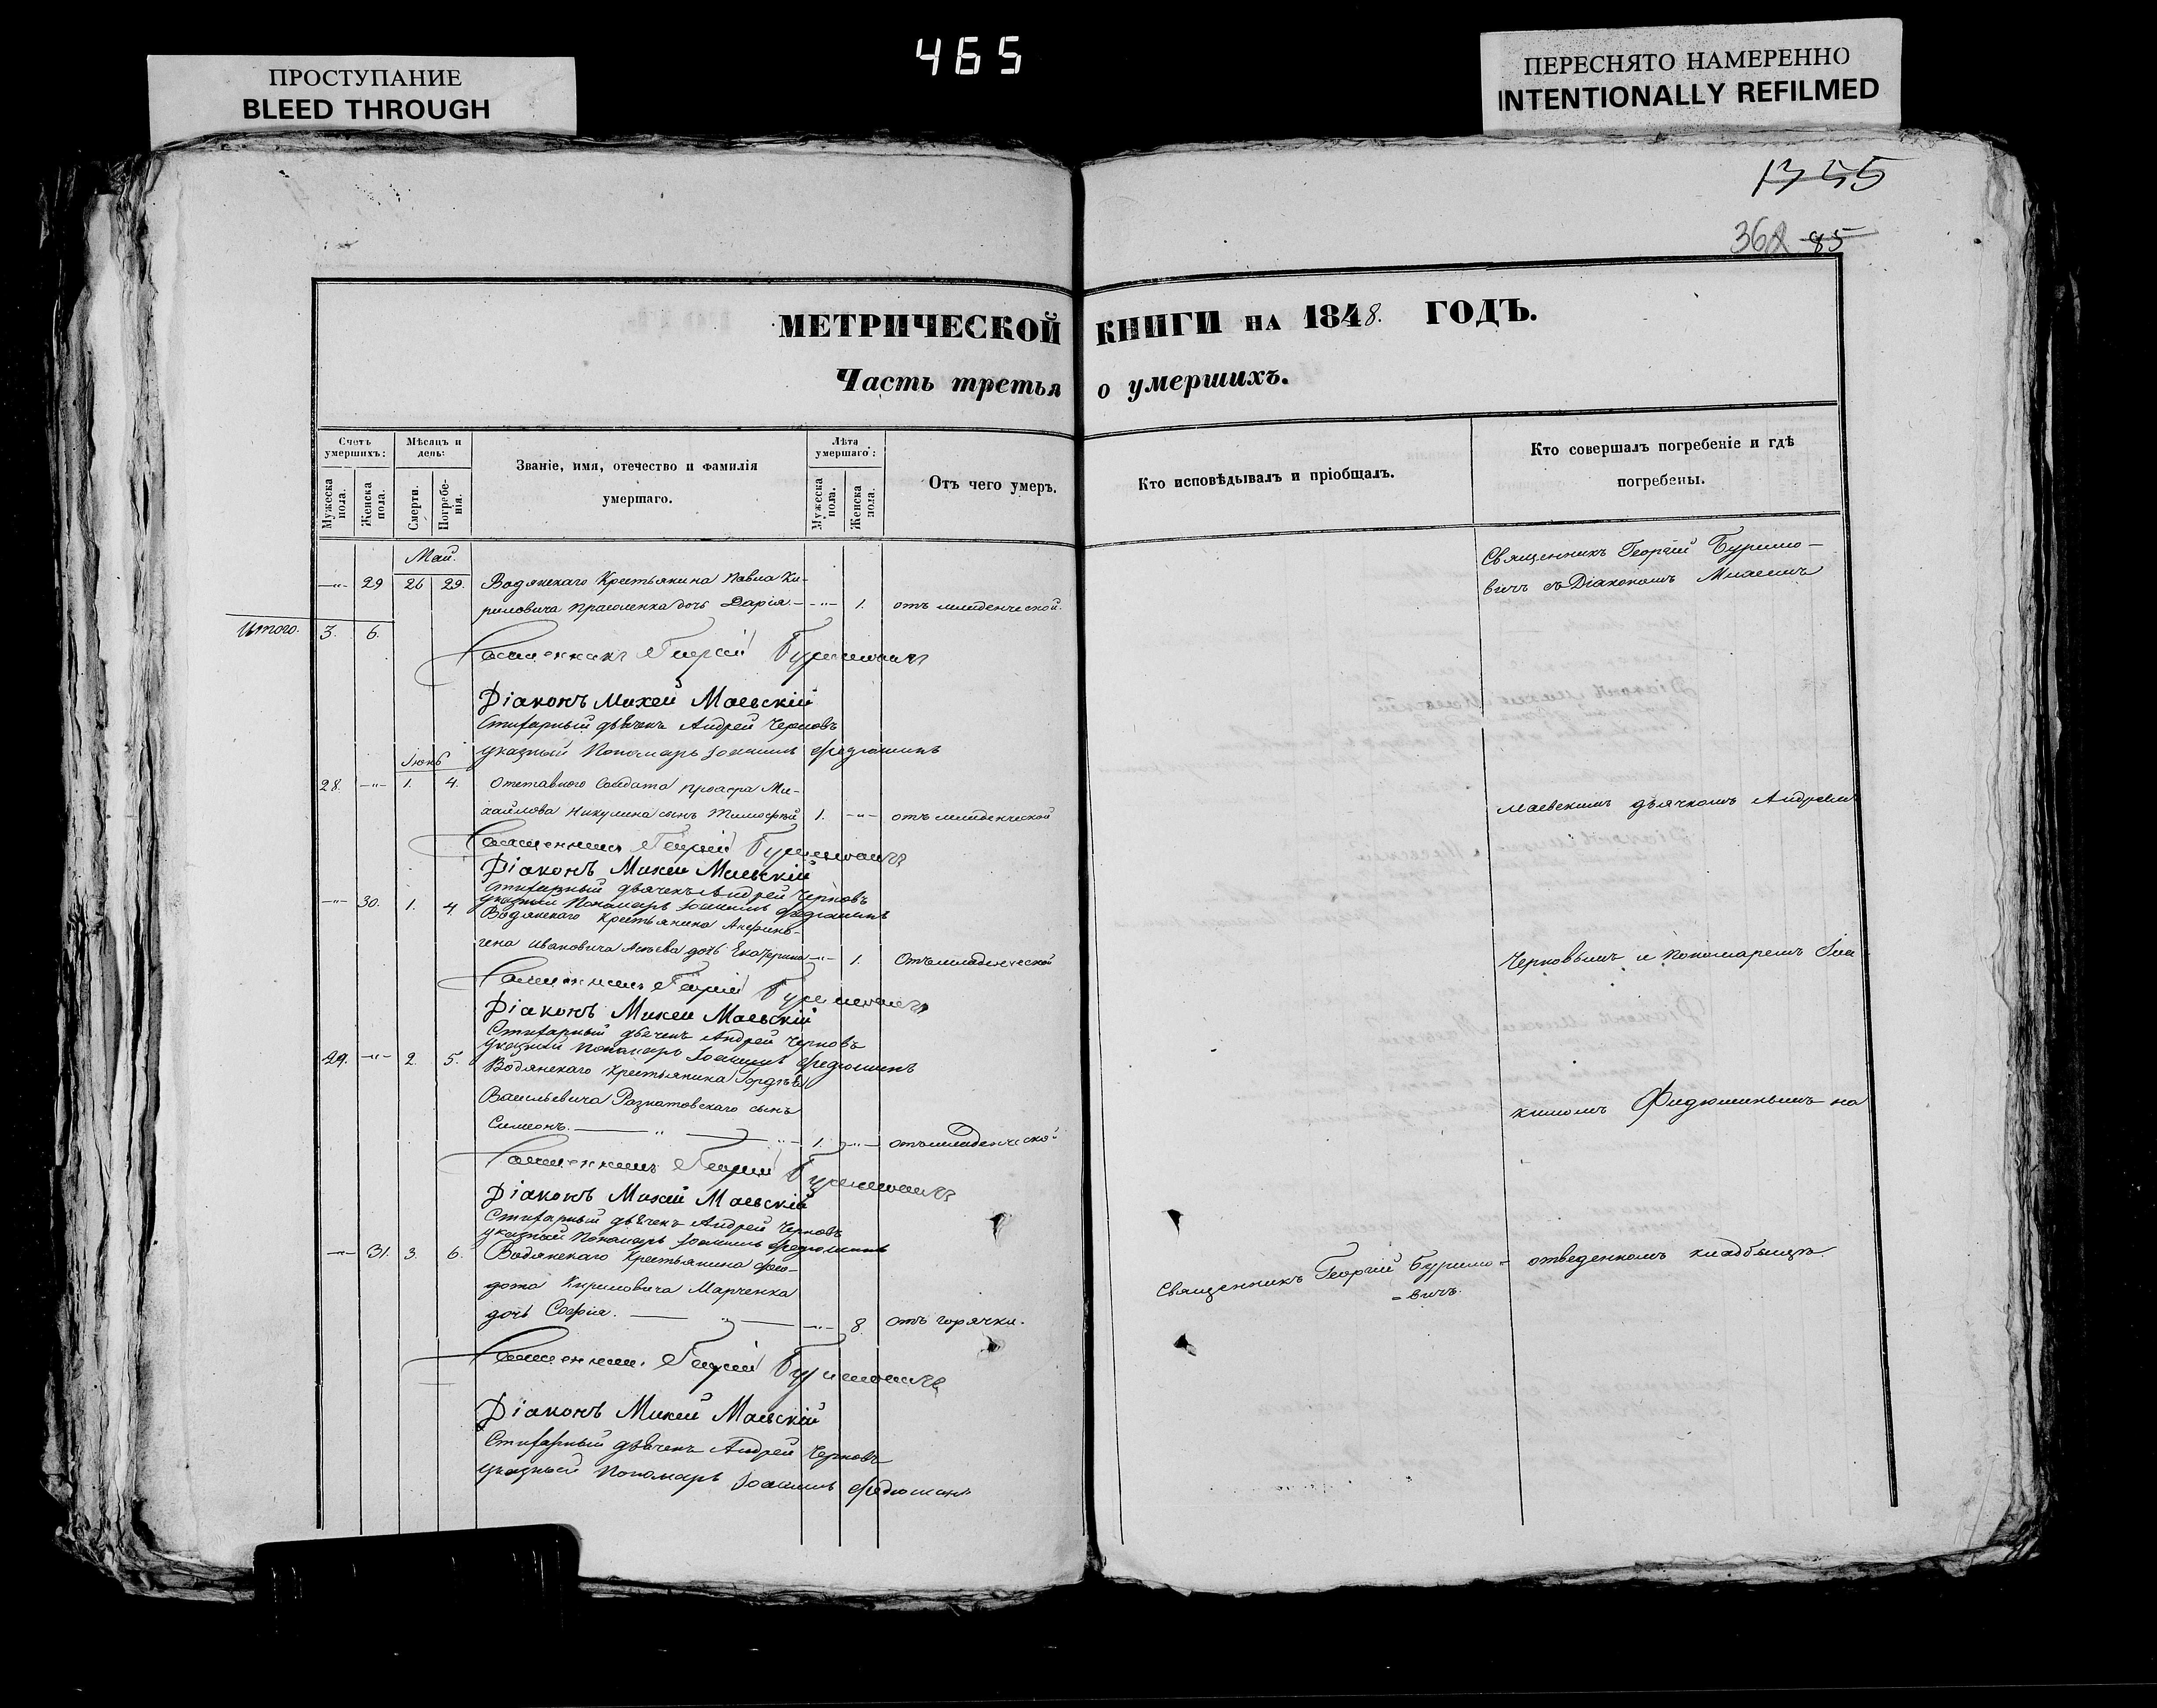 465
ПРОСТУПАНИЕ
BLEED THROUGH
ПЕРЕСНЯТО НАМЕРЕННО
INTENTIONALLY REFILMED
1355
362 85
МЕТРИЧЕСКОЙ КНИГИ НА 1848. ГОДЪ.
Часть третья о умершихъ.
Счетъ умершихъ:
Мужеска пола.
Женска пола.
Мѣсяцъ и день:
Смерти.
Погребенія.
Званіе, имя, отечество и фамилія
умершаго.
Лѣта умершаго:
Мужеска пола.
Женска пола.
Отъ чего умеръ.
Кто исповѣдывалъ и пріобщалъ.
Кто совершалъ погребеніе и гдѣ
погребены.
Май.
—"— 29 26 29. Водянскаго Крестьянина Павла Ки-
риловича дочь Дарія — —"— 1. отъ младенческой.
Священникъ Георгій Буримо-
вичъ съ Діакономъ
Итого. 3. 6.
Священникъ Георгій Буримовичъ
Діаконъ Михей Маевскій
Стихарный дьячекъ Андрей Черновъ
указный Пономарь Іоакимъ Федюшинъ
Іюнь
28. —"— 1. 4. Отставного Солдата Ми-
хайлова Никулина сынъ Тимофей 1. —"— отъ младенческой
Маевскимъ дьячкомъ Андреемъ
Священникъ Георгій Буримовичъ
Діаконъ Михей Маевскій
Стихарный дьячекъ Андрей Черновъ
указный Пономарь Іоакимъ Федюшинъ
—"— 30. 1. 4 Водянскаго Крестьянина Анфино-
гена Ивановича дочь Екатерина —"— 1. Отъ младенческой
Черновымъ и Пономаремъ Іоа-
Священникъ Георгій Буримовичъ
Діаконъ Михей Маевскій
Стихарный дьячекъ Андрей Черновъ
указный Пономарь Іоакимъ Федюшинъ
29. —"— 2. 5. Водянскаго Крестьянина Гордѣя
Васильевича Разнатовскаго сынъ
Симеонъ. — " — " — 1. —"— отъ младенческой
кимомъ Федюшинымъ на
Священникъ Георгій Буримовичъ
Діаконъ Михей Маевскій
Стихарный дьячекъ Андрей Черновъ
указный Пономарь Іоакимъ Федюшинъ
—"— 31. 3. 6. Водянскаго Крестьянина Фео-
дота Кириловича Марченка
дочь Софія. — " — —"— 8. отъ горячки.
Священникъ Георгій Буримо-
-вичъ.
отведенномъ кладбищѣ
Священникъ Георгій Буримовичъ
Діаконъ Михей Маевскій
Стихарный дьячекъ Андрей Черновъ
указный Пономарь Іоакимъ Федюшинъ